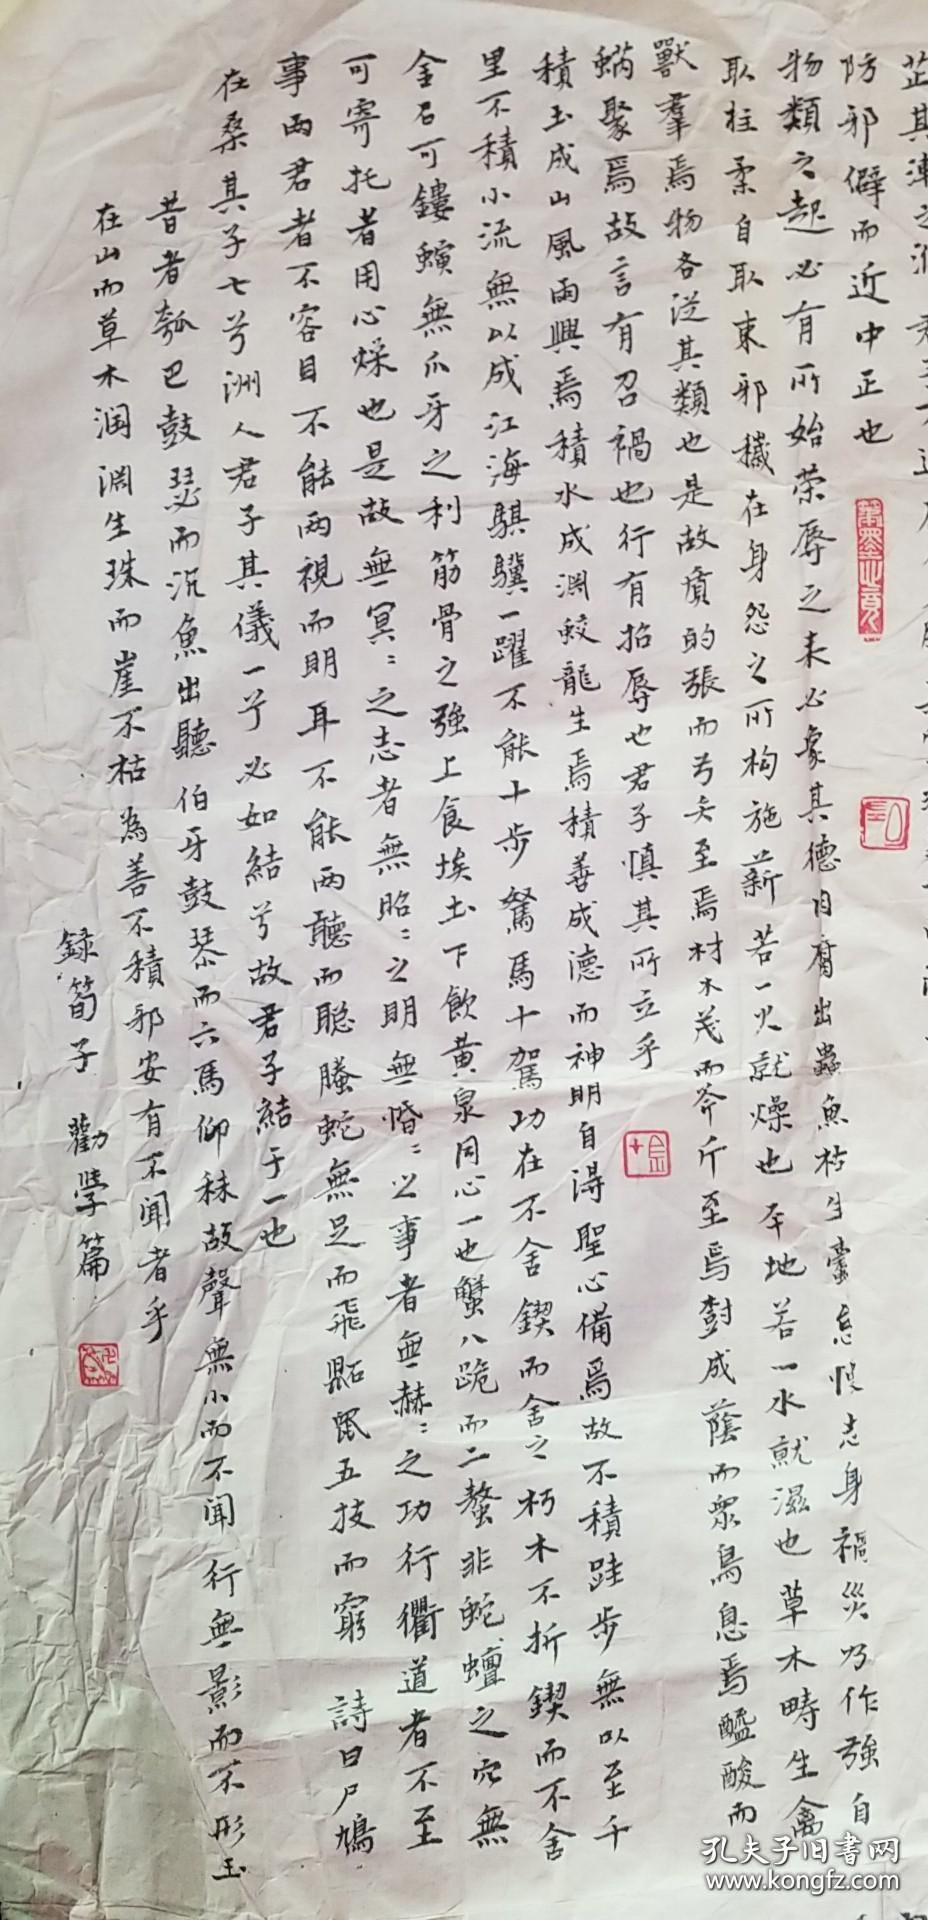 芷其漸之滫君子不近庶人不服
防邪僻而近中正也
物類之起必有所始荣辱之来必象其德肉腐出蟲魚枯生蠹怠慢忘身禍災乃作強自
取柱柔自取束邪穢在身怨之所构施薪若一火就燥也平地若一水就濕也草木畴生禽
獸羣焉物各从其類也是故質的張而弓矢至焉材木茂而斧斤至焉樹成蔭而眾鳥息焉醯酸而
蜹聚焉故言有召禍也行有招辱也君子慎其所立乎
積土成山風雨興焉積水成淵蛟龍生焉積善成德而神明自得聖心備焉故不積跬步無以至千
里不積小流無以成江海騏驥一躍不能十步駑馬十駕功在不舍鍥而舍之朽木不折鍥而不舍
金石可鏤螾無爪牙之利筋骨之強上食埃土下飲黄泉用心一也蟹八跪而二螯非蛇蟺之穴無
可寄托者用心燥也是故無冥〻之志者無昭〻之明無惛〻之事者無赫〻之功行衢道者不至
事两君者不容目不能两視而明耳不能两聽而聪螣蛇無足而飛鼫鼠五技而窮 詩曰尸鳩
在桑其子七兮淑人君子其儀一兮必如結兮故君子結于一也
昔者瓠巴鼓瑟而沉魚出聽伯牙鼓琴而六馬仰秣故聲無小而不聞行無影而不形玉
在山而草木润渊生珠而崖不枯為善不積邪安有不聞者乎
録荀子 勸學篇
孔夫子旧書网
www.kongfz.com